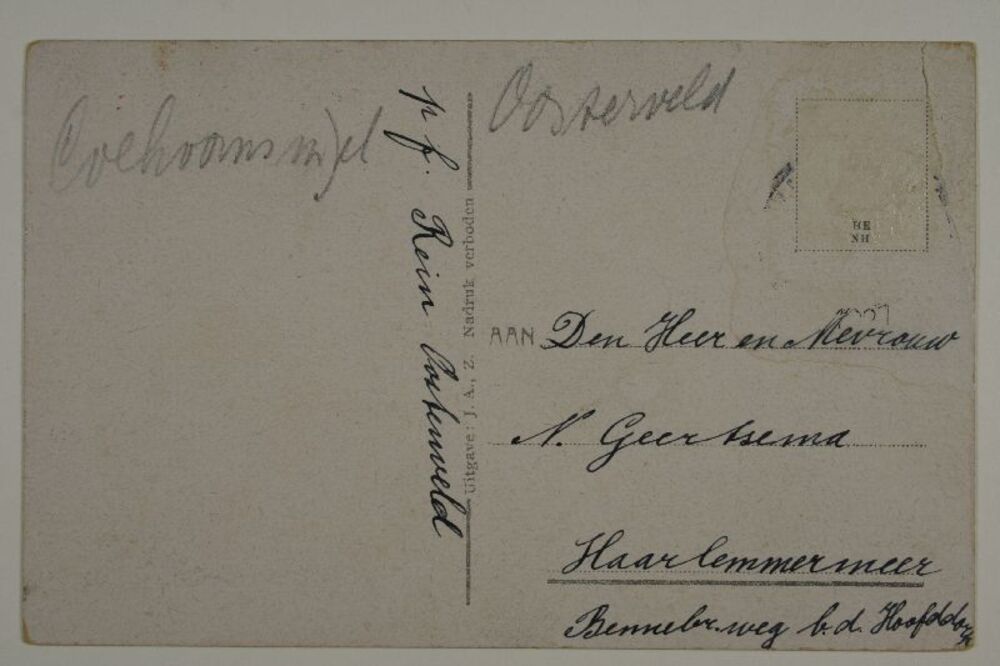 Oosterveld
p f. Rein Oosterveld
Uitgave: J. A., Z. Nadruk verboden
BE
NH
AAN Den Heer en Mevrouw
N. Geertsema
Haarlemmermeer
Bennebr. weg b.d. Hoofddorp